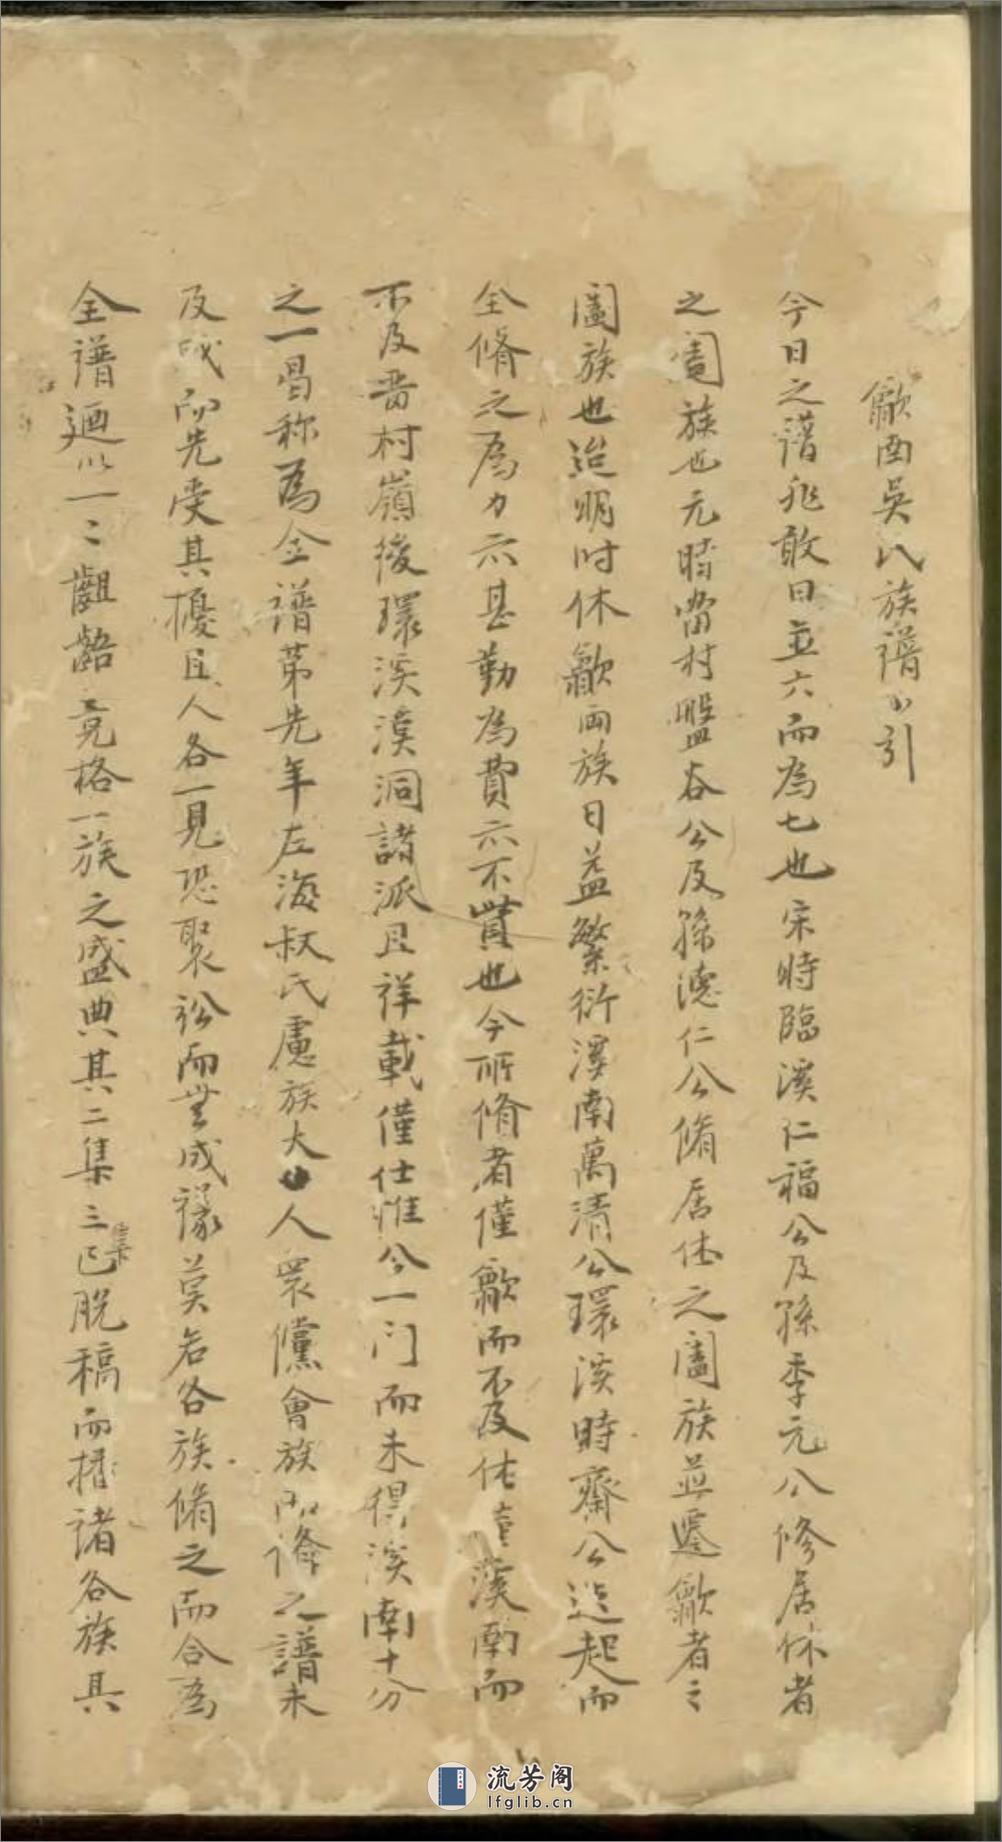 歙西吳氏族譜小引
今日之譜非敢曰並六而為七也宋時臨溪仁福公及孫季元公修居休者
之闔族也元時畨村盤谷公及孫德仁公脩居休之闔族並遷歙者之
闔族也迨明时休歙両族日益繁衍溪南萬清公環溪時齋公迭起而
全脩之為力亦甚勤為費亦不貲也今所脩者僅歙而不及休溪南而
不及畨村嶺後環溪漠洞諸派且祥載僅仕進今一门而未得溪南十分
之一曷称為全譜苐先年左海叔氏慮族大人眾儻會族而脩之譜未
及成而先受其擾且人各一見恐聚訟而無成襐莫若各族脩之而合為
全譜迺以一二齟齬竟格一族之盛典其二集三集已脫稿而攉諸各族具
流芳阁
lfglib.cn